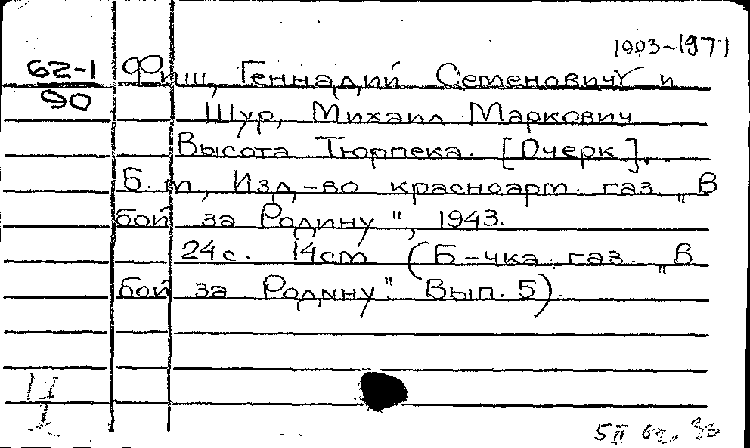 1903-1971
62-1 Фиш, Геннадий Семенович и
90 Шур, Михаил Маркович
Высота Тюрпека. [Очерк].
Б. м., Изд-во красноарм. газ. „В
бой за Родину", 1943.
24 с. 14 cm (Б-чка газ. „В
бой за Родину". Вып. 5).